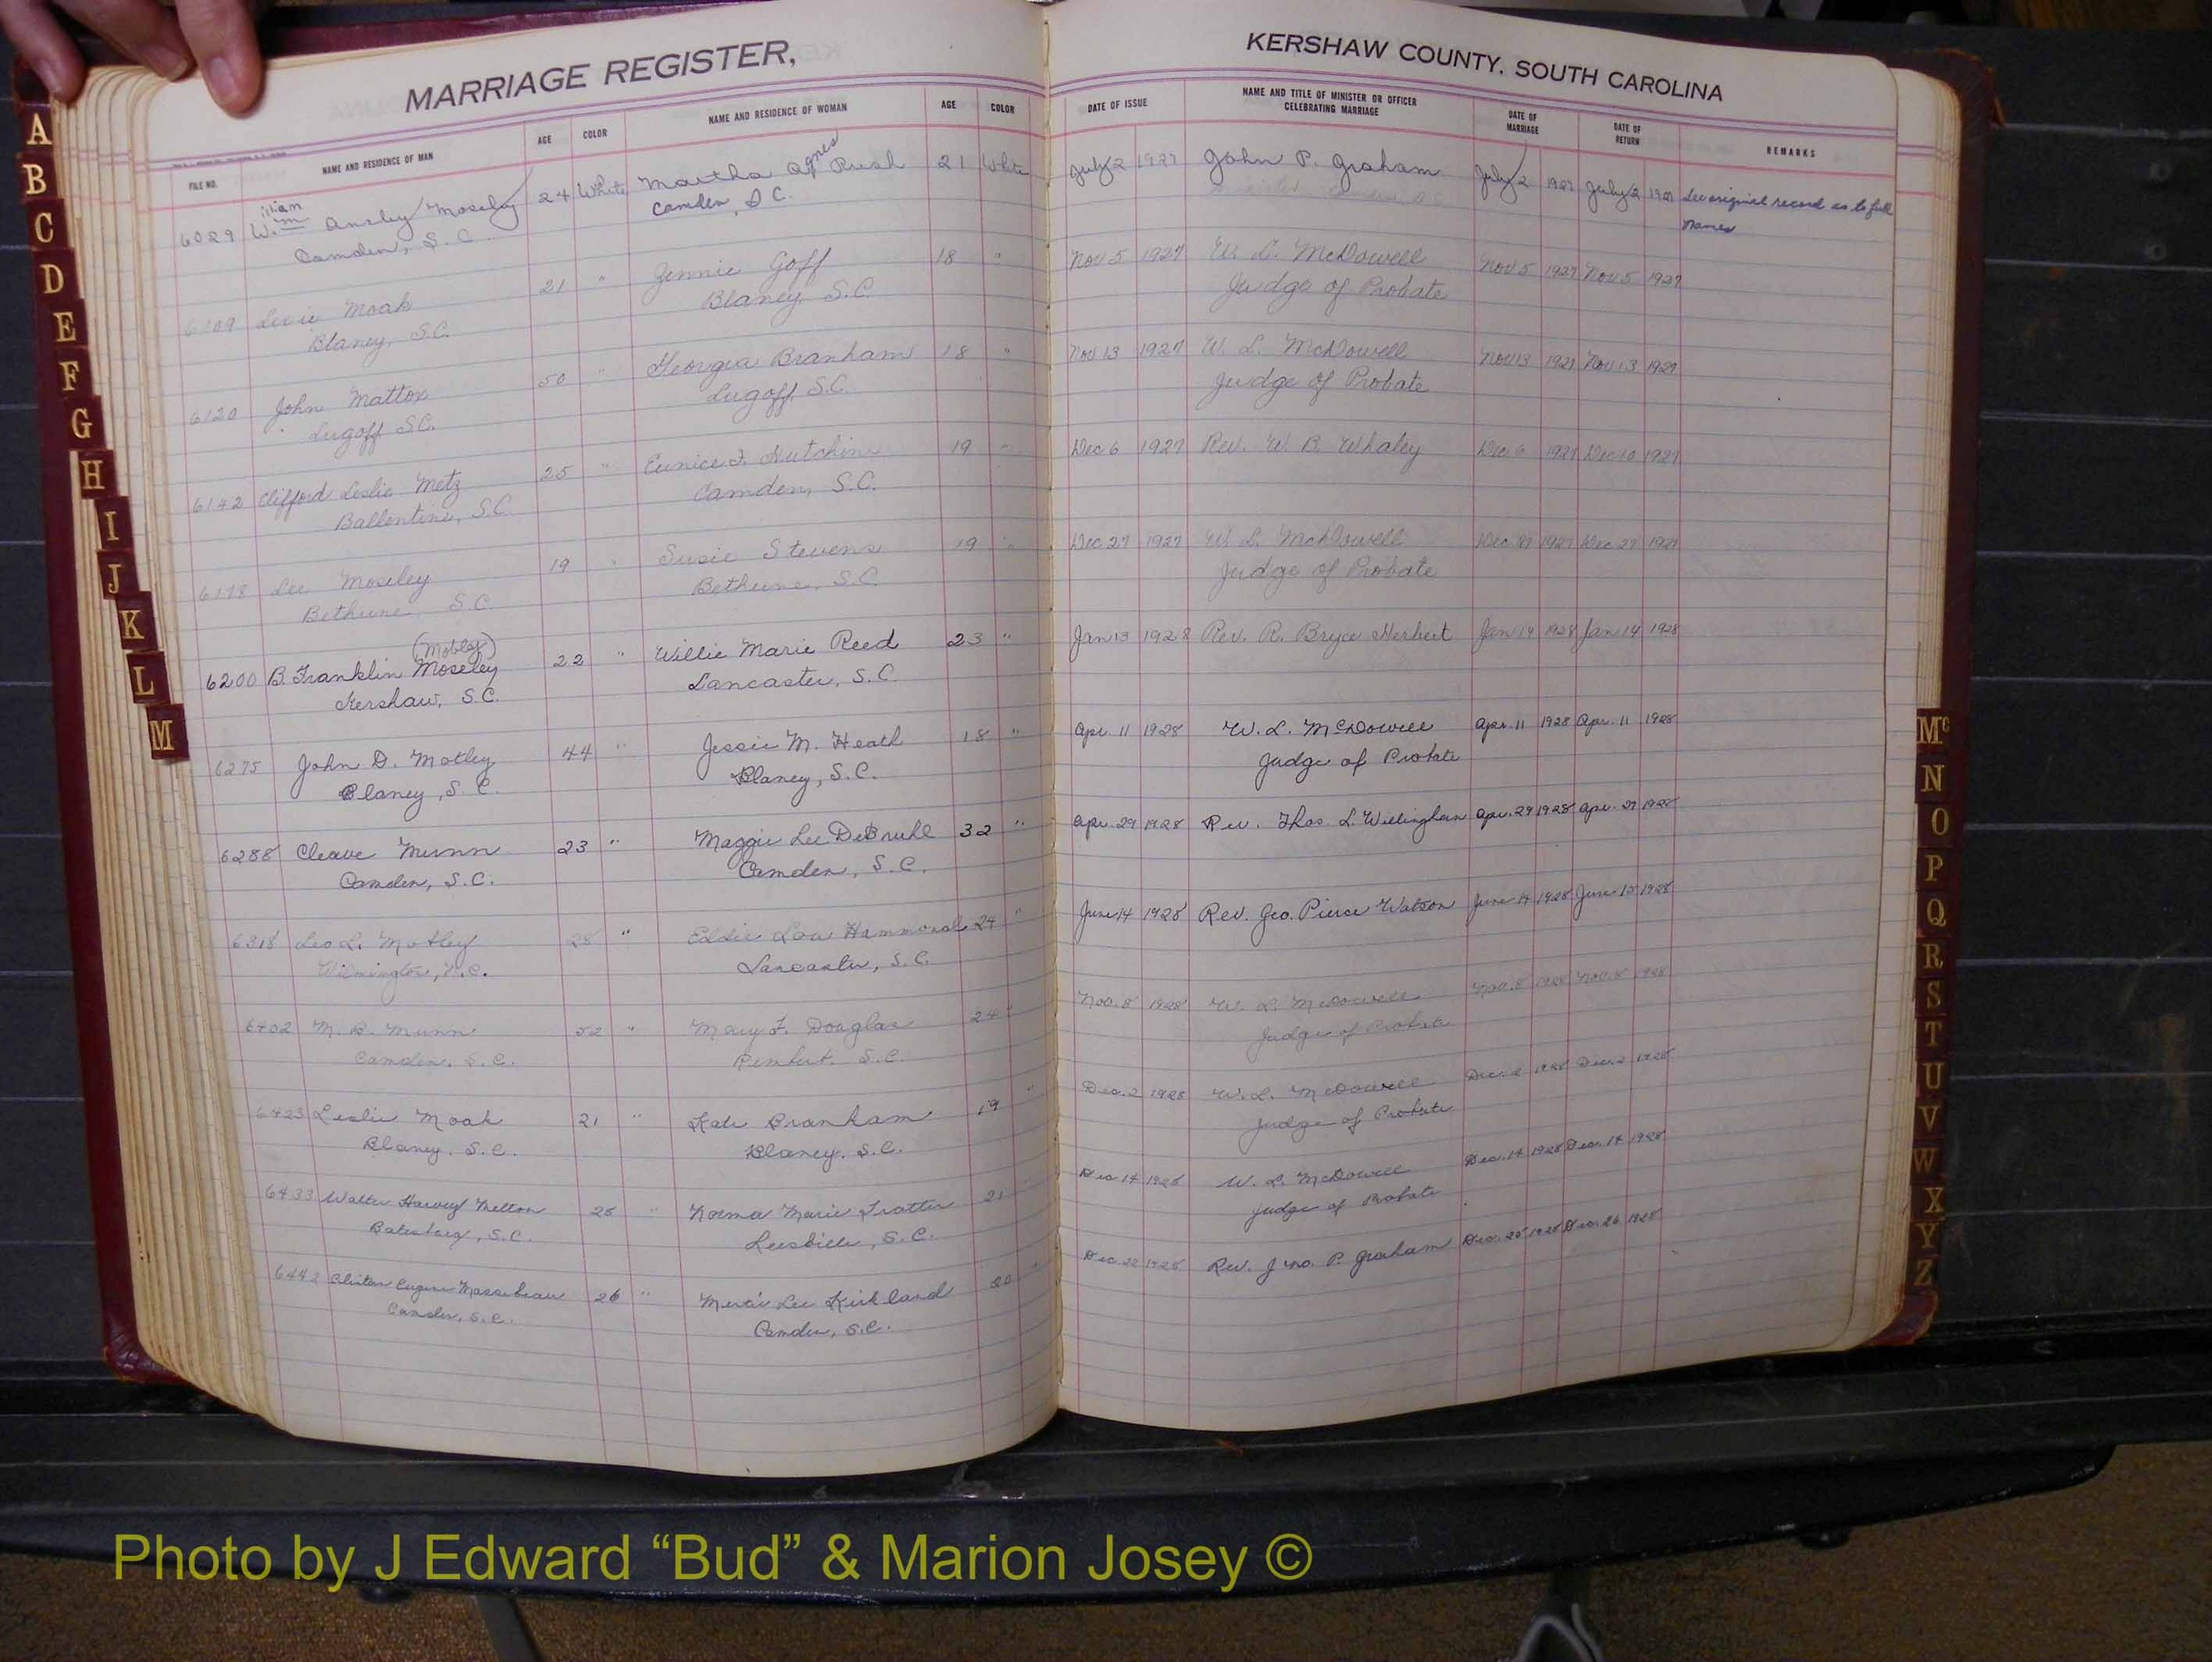 MARRIAGE REGISTER,
KERSHAW COUNTY, SOUTH CAROLINA
FILE NO. NAME AND RESIDENCE OF MAN AGE COLOR NAME AND RESIDENCE OF WOMAN AGE COLOR DATE OF ISSUE NAME AND TITLE OF MINISTER OR OFFICER CELEBRATING MARRIAGE DATE OF MARRIAGE DATE OF RETURN REMARKS
6029 Wm illiam Ansley Moseley 24 White Martha Agnes Rush 21 White July 2 1927 John P. Graham July 2 1927 July 2 1927 See original record as to full
Camden, S.C. Camden, S.C. names
6109 Moak 21 " Jennie Goff 18 " Nov 5 1927 W. L. McDowell Nov 5 1927 Nov 5 1927
Blaney, S.C. Blaney, S.C. Judge of Probate
6120 John Mattox 50 " Georgia Branham 18 " Nov 13 1927 W. L. McDowell Nov 13 1927 Nov 13 1927
Lugoff S.C. Lugoff, S.C. Judge of Probate
6142 Clifford Leslie Metz 25 " Eunice Hutchins 19 " Dec 6 1927 Rev. W. B. Whaley Dec 6 1927 Dec 10 1927
Ballentine, S.C. Camden, S.C.
Lee Moseley 19 " Susie Stevens 19 " Dec 27 1927 W. L. McDowell Dec 27 1927 Dec 27 1927
Bethune S.C. Bethune, S.C. Judge of Probate
(Mobley)
6200 B. Franklin Moseley 22 " Willie Marie Reed 23 " Jan 13 1928 Rev. R. Bryce Herbert Jan 14 1928 Jan 14 1928
Kershaw, S.C. Lancaster, S.C.
6275 John D. Motley 44 " Jessie M. Heath 18 " Apr. 11 1928 W. L. McDowell Apr. 11 1928 Apr. 11 1928
Blaney, S.C. Blaney, S.C. Judge of Probate
6288 Cleave Munn 23 " Maggie Lee DeBruhl 32 " Apr. 29 1928 Rev. Thos. L. Willingham Apr. 29 1928 Apr. 29 1928
Camden, S.C. Camden, S.C.
6318 Leo L. Motley 28 " Lou Hammond 24 " June 14 1928 Rev. Geo. Pierce Watson June 14 1928 June 15 1928
Wilmington, N.C. Lancaster, S.C.
6402 M. B. Munn 52 " Mary F. Douglas 24 " Nov. 8 1928 W. L. McDowell Nov. 8 1928 Nov. 8 1928
Camden, S.C. Rembert, S.C. Judge of Probate
6423 Leslie Moak 21 " Kate Branham 19 " Dec. 2 1928 W. L. McDowell Dec. 2 1928 Dec. 2 1928
Blaney, S.C. Blaney, S.C. Judge of Probate
6433 Walter Harvey Melton 25 " Norma Marie Trotter 21 " Dec 14 1928 W. L. McDowell Dec. 14 1928 Dec. 14 1928
Batesburg, S.C. Leesville, S.C. Judge of Probate
6442 Clinton Eugene Massebeau 26 " Lee Kirkland 20 " Dec. 22 1928 Rev. Jno. P. Graham Dec. 25 1928 Dec. 26 1928
Camden, S.C. Camden, S.C.
A
B
C
D
E
F
G
H
I
J
K
L
M
Mc
N
O
P
Q
R
S
T
U
V
W
X
Y
Z
Photo by J Edward “Bud” & Marion Josey ©